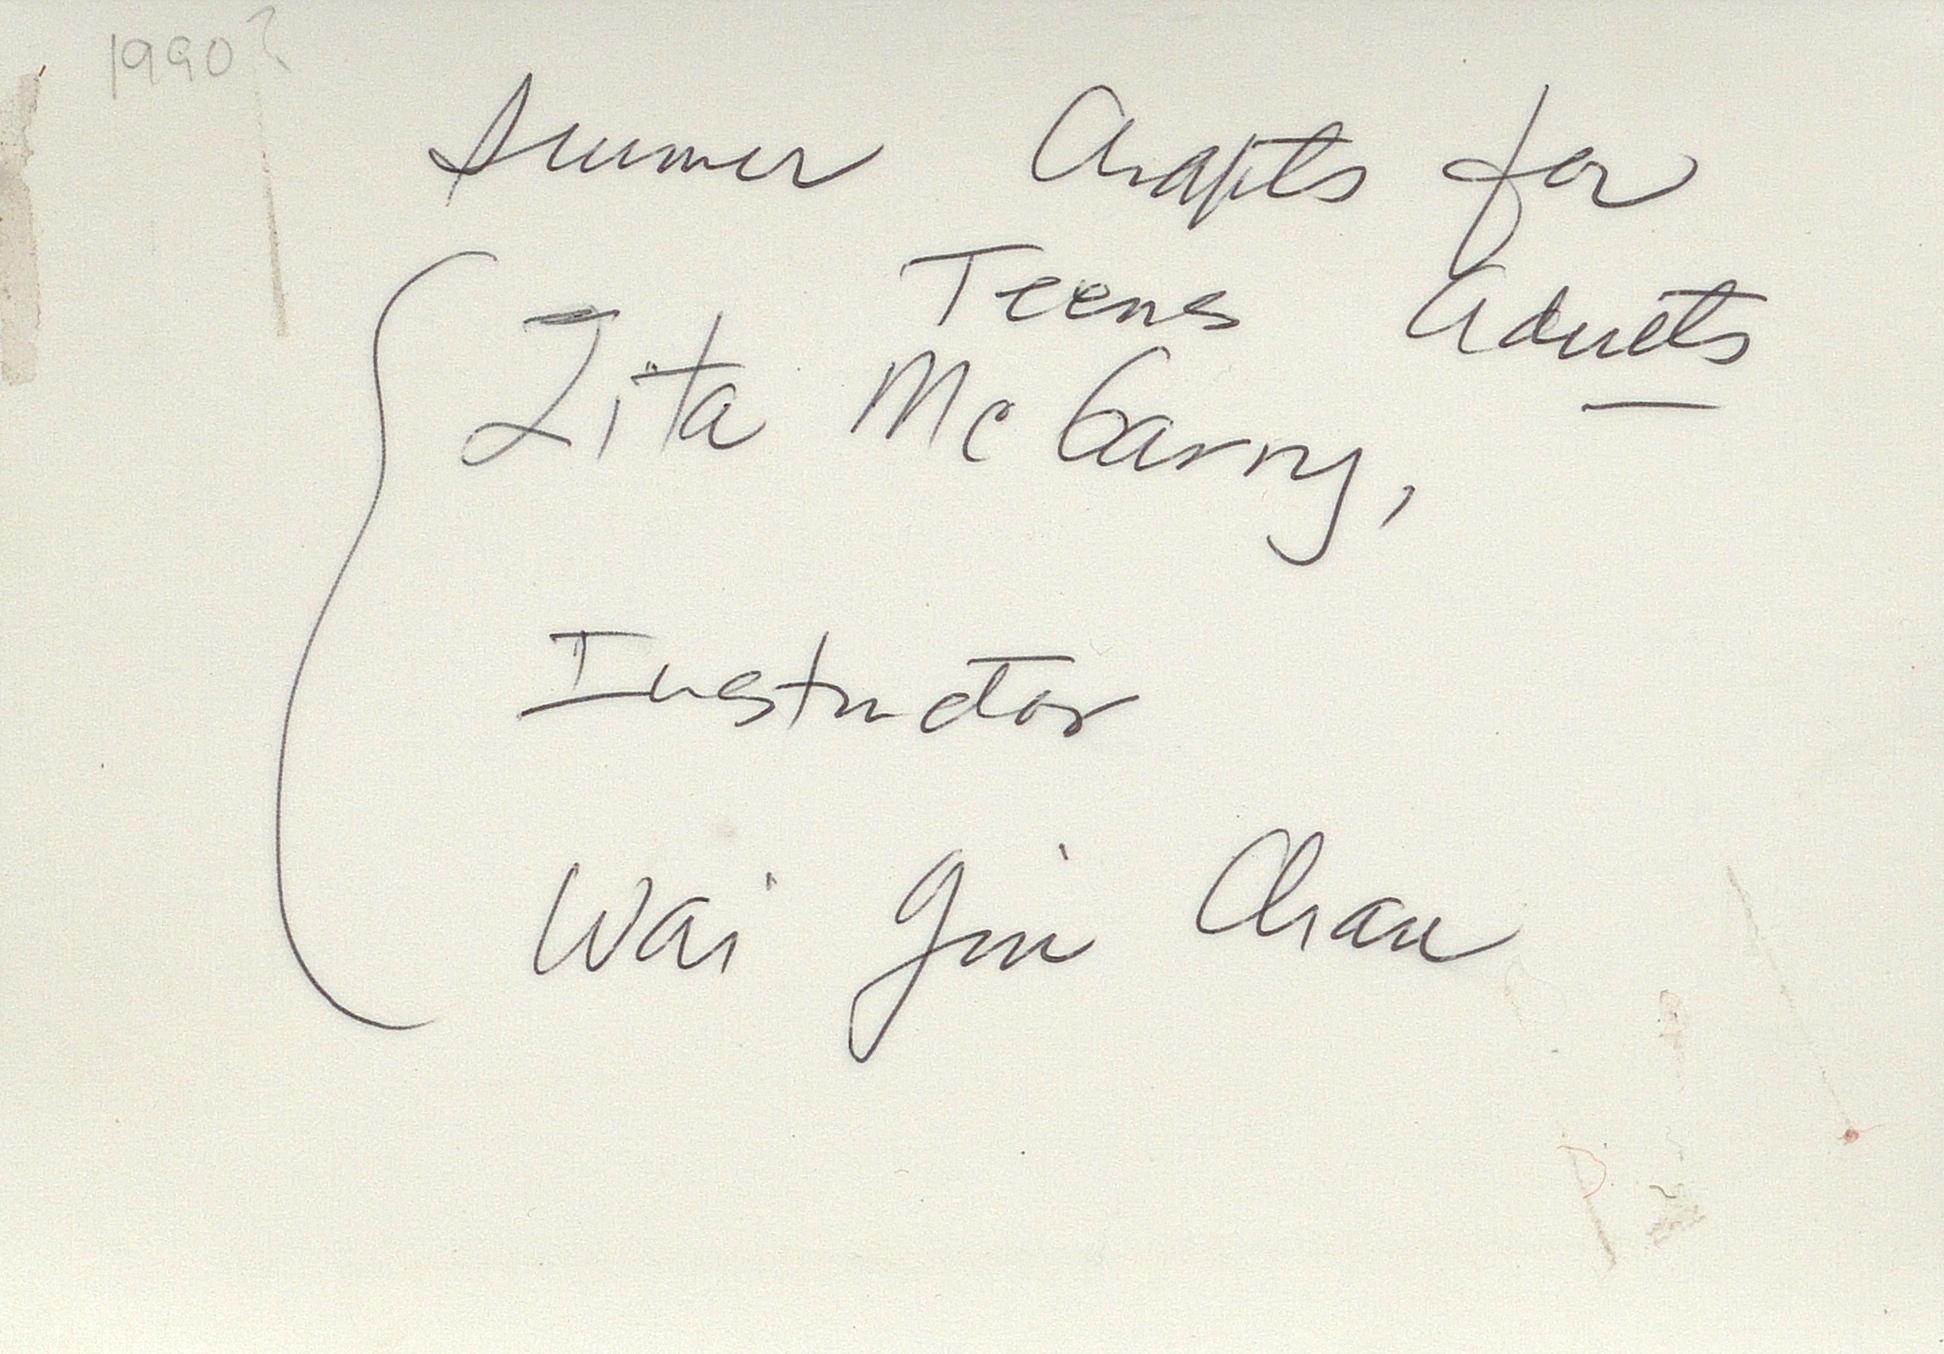 1990?
Summer Crafts for
Teens Adults
Zita McGarry,
Instructor
Wai Gin Chan